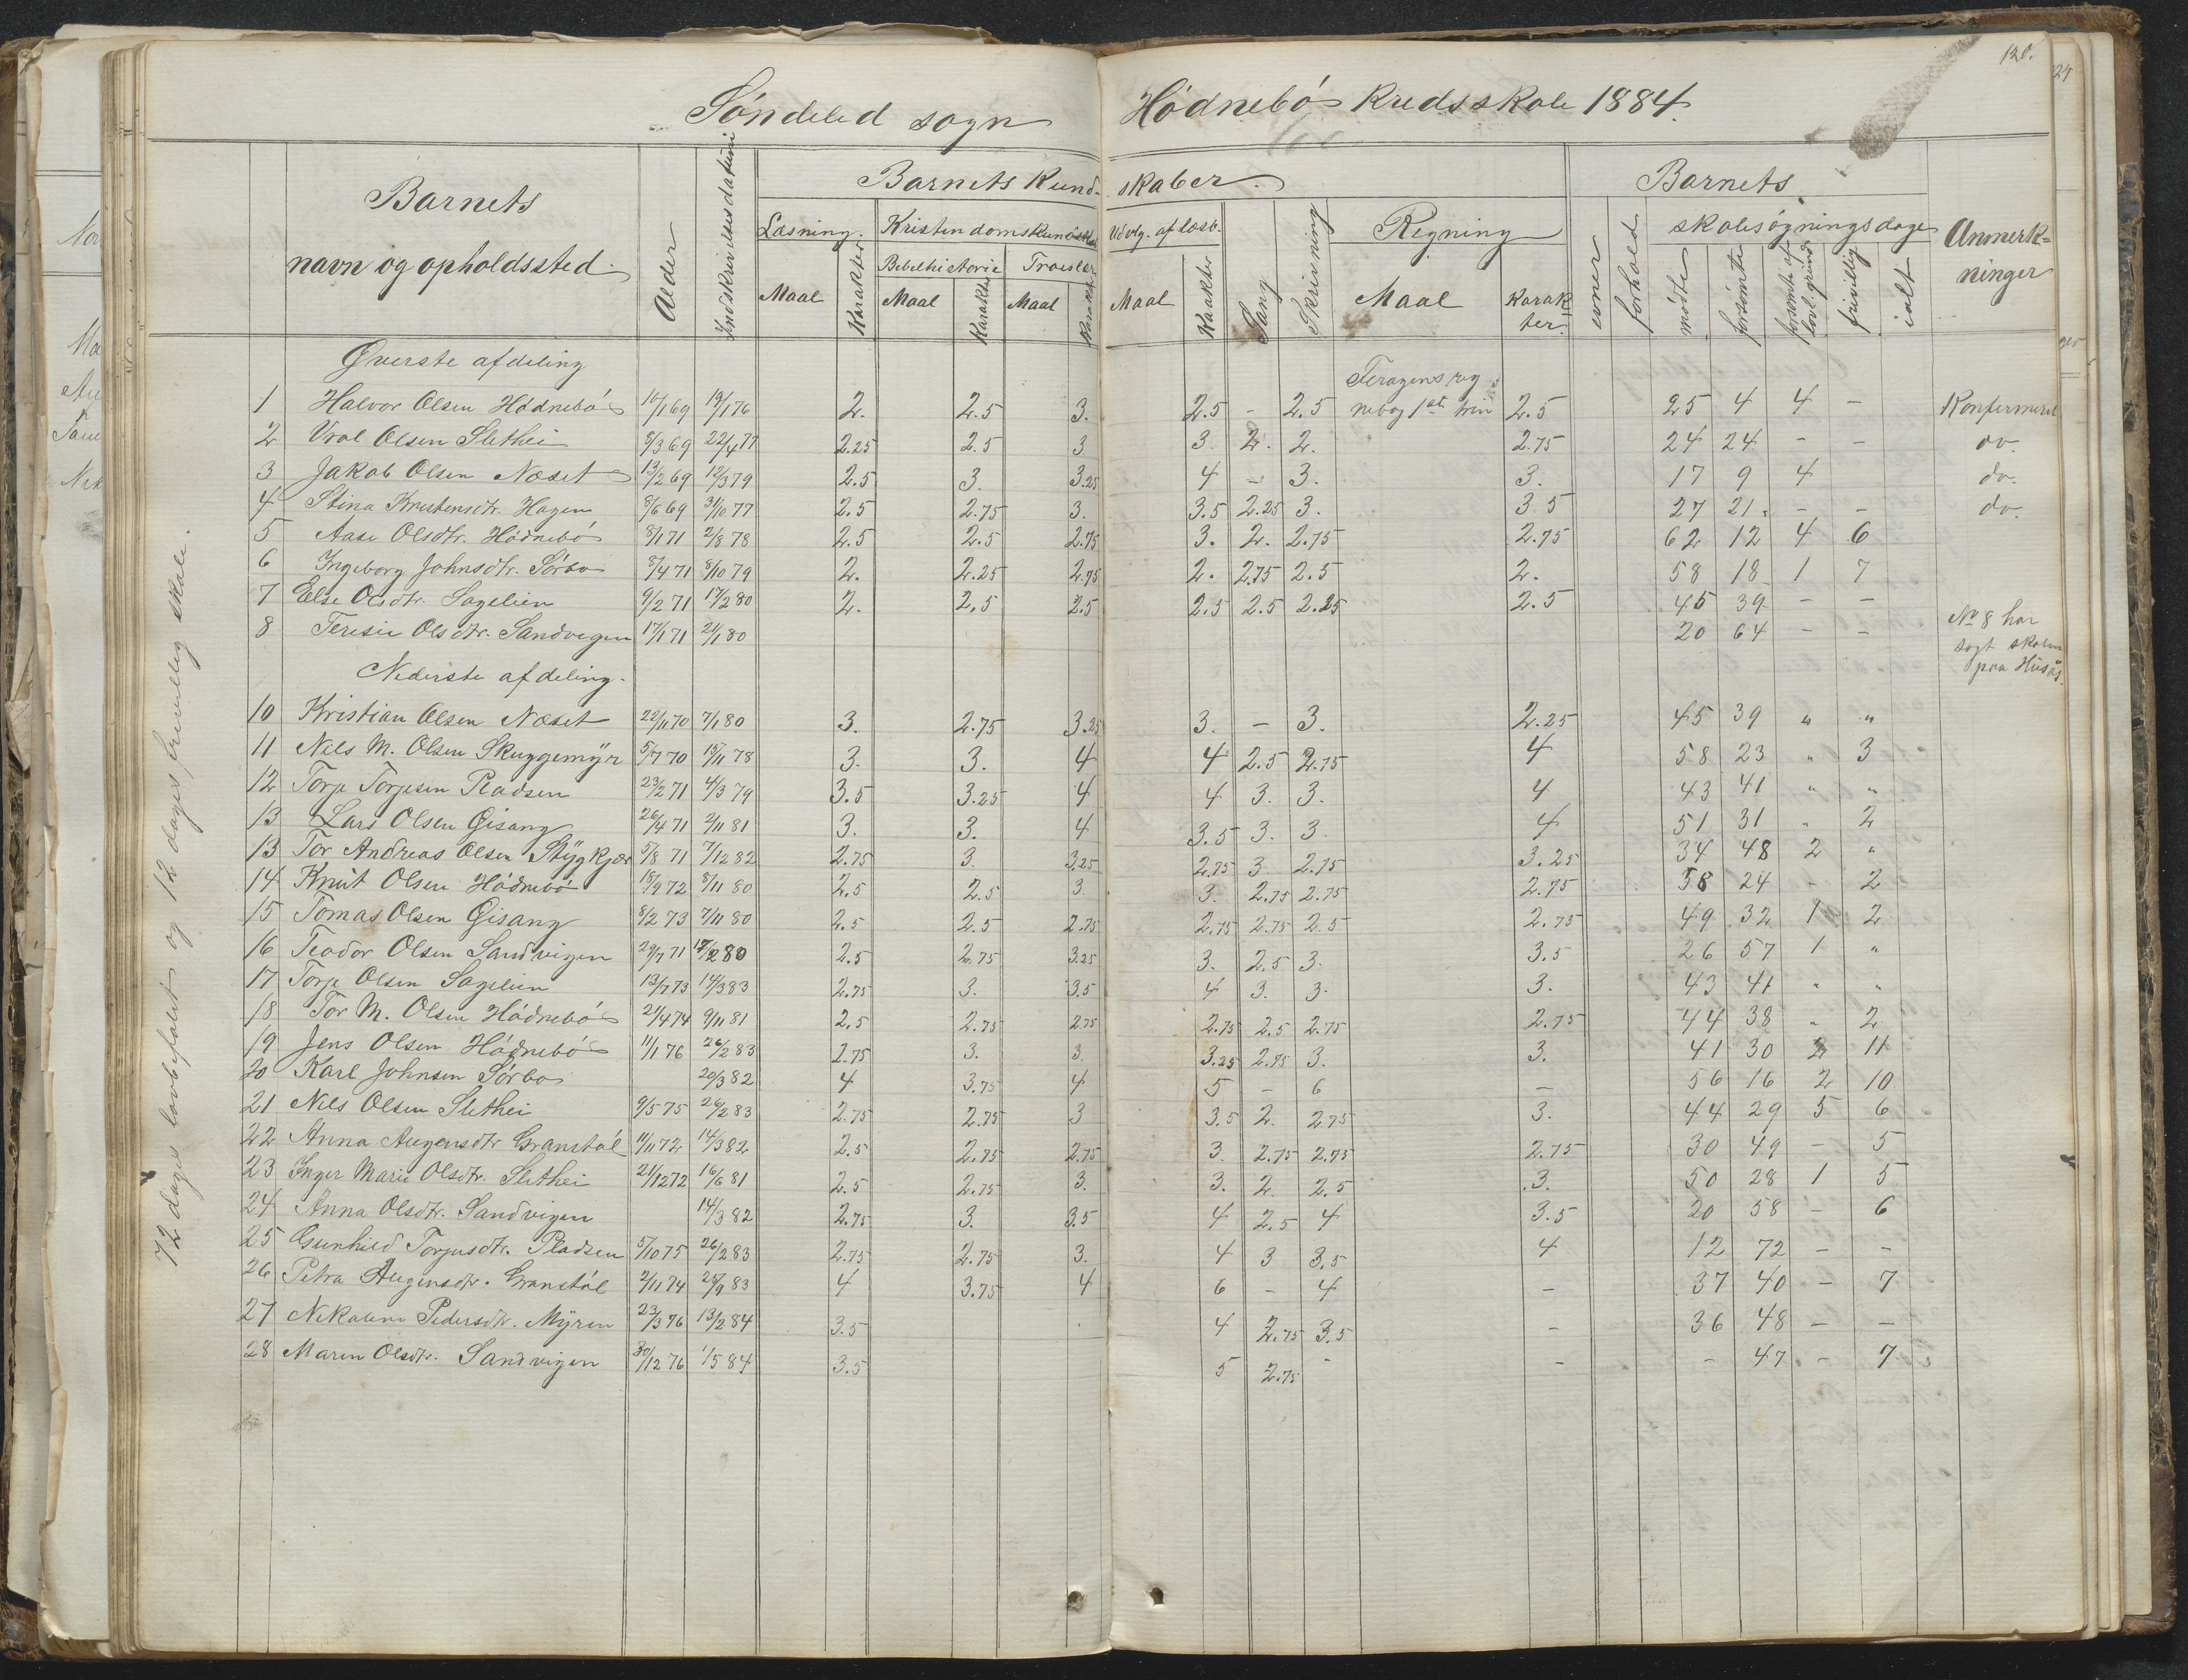 120.
Söndeled sogn Hödnebö Kredsskole 1884.
Barnets navn og opholdssted. Alder Indskrivelsesdatum Barnets Kundskaber. Barnets Anmerkninger
Læsning. Kristendomskundskab Udvlg. af læsb. Sang Skrivning Regning evner forhold skolesøgningsdage
Bibelhistorie Troeslær
Maal Karakter Maal Karakter Maal Karakter Maal Karakter Maal Karakter mødte forsømte forsømte af lovl. grund frivillig ialt
Øverste afdeling
1 Halvor Olsen Hødnebö 10/1 69 19/1 76 2. 2.5 3. 2.5 - 2.5 nebog 1ste trin 2.5 25 4 4 - Konfirmeret
2 Vrol Olsen Slethei 8/3 69 22/4 77 2.25 2.5 3 3. 2. 2. 2.75 24 24 - - do.
3 Jakob Olsen Næset 13/2 69 12/3 79 2.5 3. 3.25 4 - 3. 3. 17 9 4 do.
4 Stina Kristensdtr. Hagen 8/6 69 31/10 77 2.5 2.75 3. 3.5 2.25 3. 3 5 27 21. - - do.
5 Aase Olsdtr. Hødnebö 8/1 71 2/8 78 2.5 2.5 2.75 3. 2. 2.75 2.75 62 12 4 6
6 Ingeborg Johnsdtr. Sørbø 8/4 71 8/10 79 2. 2.25 2.75 2. 2.75 2.5 2. 58 18 1 7
7 Else Olsdtr. Sagelien 9/2 71 17/2 80 2. 2.5 2.5 2.5 2.5 2.25 2.5 45 39 - -
8 Teresie Olsdtr. Sandvigen 17/1 71 21/1 80 20 64 - - No 8 har søgt skolen paa Husås.
Nederste afdeling.
10 Kristian Olsen Næset 22/11 70 7/1 80 3. 2.75 3.25 3. - 3. 2.25 45 39 " "
11 Nils M. Olsen Skuggemyr 5/7 70 19/11 78 3. 3. 4 4 2.5 2.75 4 58 23 " 3
12 Torje Torjesen Pladsen 23/2 71 4/3 79 3.5 3.25 4 4 3. 3. 4 43 41 " "
13 Lars Olsen Gisang 26/4 71 2/11 81 3. 3. 4 3.5 3. 3. 4 51 31 " 2
13 Tor Andreas Olsen Stygkjær 5/8 71 7/12 82 2.75 3. 3.25 2.75 3 2.75 3.25 34 48 2 "
14 Knut Olsen Hødnebö 18/9 72 8/11 80 2.5 2.5 3. 3. 2.75 2.75 2.75 58 24 - 2
15 Tomas Olsen Gisang 8/2 73 7/11 80 2.5 2.5 2.75 2.75 2.75 2.5 2.75 49 32 1 2
16 Teodor Olsen Sandvigen 29/7 71 17/2 80 2.5 2.75 3.25 3. 2.5 3. 3.5 26 57 1 "
17 Torje Olsen Sagelien 13/7 73 14/3 83 2.75 3. 3.5 4 3. 3. 3. 43 41 " "
18 Tor M. Olsen Hødnebö 21/4 74 9/11 81 2.5 2.75 2.75 2.75 2.5 2.75 2.75 44 38 " 2
19 Jens Olsen Hødnebö 11/1 76 26/2 83 2.75 3. 3. 3.25 2.75 3. 3. 41 30 2 11
20 Karl Johnsen Sørbø 20/3 82 4 3.75 4 5 - 6 - 56 16 2 10
21 Nils Olsen Slethei 9/5 75 26/2 83 2.75 2.75 3 3.5 2. 2.75 3. 44 29 5 6
22 Anna Augensdtr Granstøl 11/11 72 14/3 82 2.5 2.75 2.75 3. 2.75 2.75 2.75 30 49 - 5
23 Inger Marie Olsdtr. Slethei 21/12 72 16/6 81 2.5 2.75 3. 3. 2. 2.5 3. 50 28 1 5
24 Anna Olsdtr. Sandvigen 14/3 82 2.75 3. 3.5 4 2.5 4 3.5 20 58 - 6
25 Gunhild Torjusdtr. Pladsen 5/10 75 26/2 83 2.75 2.75 3. 4 3 3.5 4 12 72 - -
26 Petra Augensdtr. Granstøl 2/11 74 28/9 83 4 3.75 4 6 - 4 - 37 40 - 7
27 Nikoline Pedersdtr. Myren 23/3 76 13/2 84 3.5 4 2.75 3.5 - 36 48 - -
28 Maren Olsdtr. Sandvigen 30/12 76 1/5 84 3.5 5 2.75 - - - 47 - 7
72 dages lovbefalet og 12 dages frivillig skole.